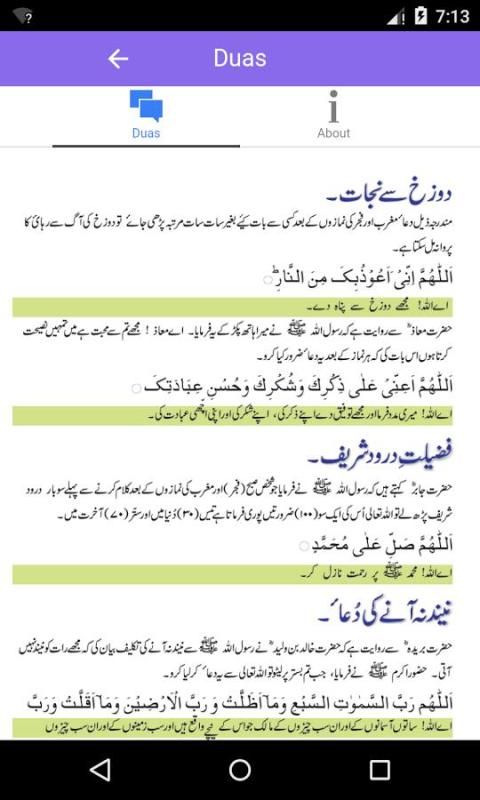 7:13
Duas
Duas
About
دوزخ سے نجات۔
مندرجہ ذیل دعا مغرب اور فجر کی نمازوں کے بعد کسی سے بات کیے بغیر سات سات مرتبہ پڑھی جائے تو دوزخ کی آگ سے رہائی کا
پروانہ مل سکتا ہے۔
اَللّٰهُمَّ اِنِّیْ اَعُوْذُبِکَ مِنَ النَّارِ
اے اللہ! مجھے دوزخ سے پناہ دے۔
حضرت معاذؓ سے روایت ہے کہ رسول اللہ ﷺ نے میرا ہاتھ پکڑ کے یہ فرمایا۔ اے معاذ ! مجھے تم سے محبت ہے میں تمہیں نصیحت
کرتا ہوں اس بات کی کہ ہر نماز کے بعد یہ دعا ضرور کیا کرو۔
اَللّٰهُمَّ اَعِنِّیْ عَلٰی ذِکْرِكَ وَشُکْرِكَ وَحُسْنِ عِبَادَتِکَ
اے اللہ! میری مدد فرما اور مجھے توفیق دے اپنے ذکر کی، اپنے شکر کی اور اپنی اچھی عبادت کی۔
فضیلتِ درود شریف۔
حضرت جابرؓ کہتے ہیں کہ رسول اللہ ﷺ نے فرمایا جو شخص صبح (فجر) اور مغرب کی نمازوں کے بعد کلام کرنے سے پہلے سو بار درود
شریف پڑھ لے تو اللہ تعالی اُس کی ایک سو (۱۰۰) ضرورتیں پوری فرماتا ہے تیس (۳۰) دُنیا میں اور ستّر (۷۰) آخرت میں۔
اَللّٰهُمَّ صَلِّ عَلٰی مُحَمَّدٍ
اے اللہ! محمد ﷺ پر رحمت نازل کر۔
نیند نہ آنے کی دُعا۔
حضرت بریدہؓ سے روایت ہے کہ حضرت خالد بن ولیدؓ نے رسول اللہ ﷺ سے نیند نہ آنے کی تکلیف بیان کی کہ مجھے رات کو نیند نہیں
آتی۔ حضور اکرم ﷺ نے فرمایا، جب تم بستر پر لیٹو تو اللہ تعالی سے یہ دعا کر لیا کرو۔
اَللّٰهُم رَبَّ السَّمٰوٰتِ السَّبْعِ وَمَا اَظَلَّتْ وَ رَبَّ الْاَرْضِیْنَ وَمَا اَقَلَّتْ وَرَبَّ
اے اللہ! ساتوں آسمانوں کے اور ان سب چیزوں کے مالک جو اس کے نیچے واقع ہیں اور سب زمینوں کے اور ان سب چیزوں